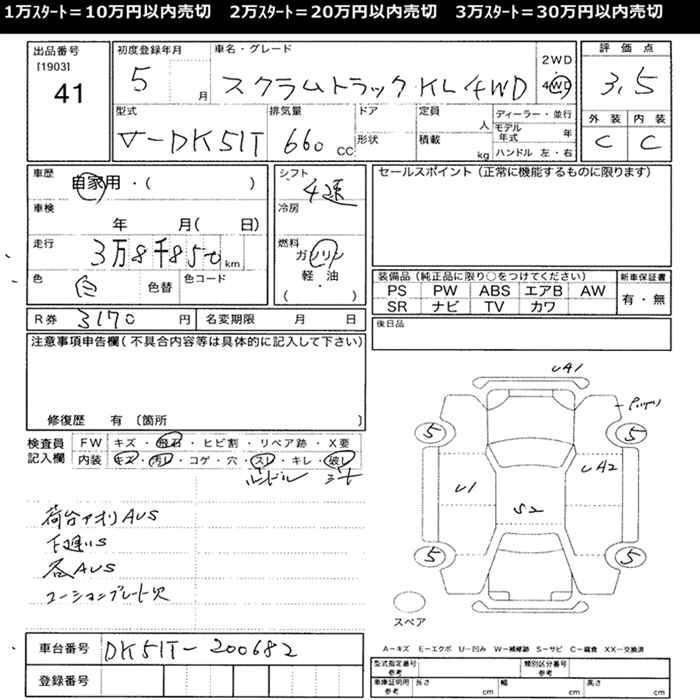 1万スタート＝10万円以内売切　2万スタート＝20万円以内売切　3万スタート＝30万円以内売切
出品番号
[1903]
41
初度登録年月
5
月
車名・グレード
スクラムトラック KL 4WD
2WD
4WD
評価点
3.5
外装 内装
C C
型式
V-DK51T
排気量
660 CC
ドア
形状
定員
人
積載
kg
ディーラー・並行
モデル年式 年
ハンドル 左・右
車歴
自家用・( )
車検
年 月( 日)
走行
3万8千850km
色
白
色替
色コード
シフト
4速
冷房
燃料
ガソリン
軽・油
( )
セールスポイント（正常に機能するものに限ります）
装備品（純正品に限り○をつけてください）
PS PW ABS エアB AW
SR ナビ TV カワ
新車保証書
有・無
R券 3170 円 名変期限 月 日
後日品
注意事項申告欄（不具合内容等は具体的に記入して下さい）
修復歴 有 〔箇所 〕
検査員記入欄
FW キズ・飛石・ヒビ割・リペア跡・X要
内装 キズ・汚レ・コゲ・穴・スレ・キレ・破レ
シート
荷台アオリAUS
下廻りS
各AUS
コーションプレート欠
UA1
5 5
U1
UA2
S2
5 5
スペア
A－キズ E－エクボ U－凹み W－補修跡 S－サビ C－腐食 XX－交換済
車台番号 DK51T-200682
登録番号
型式指定番号 参考
類別区分番号 参考
車庫証明用 参考
長さ cm 幅 cm 高さ cm